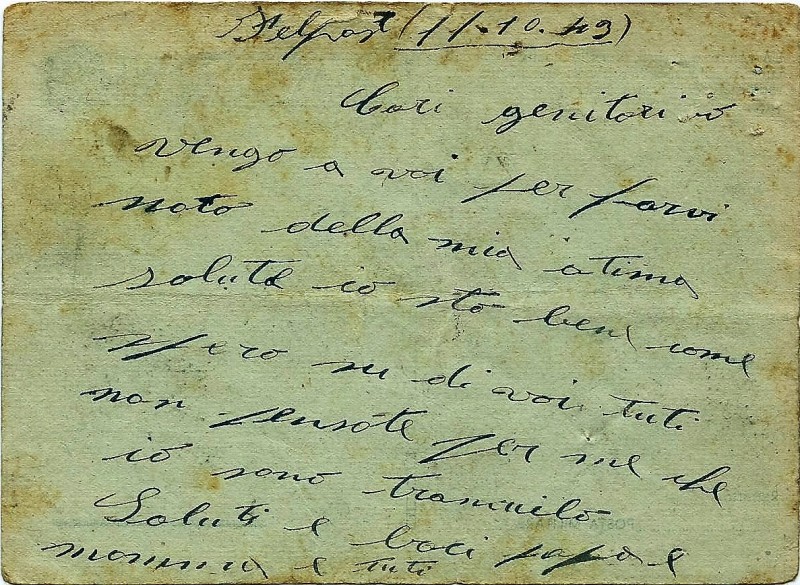 Felpost (11.10.43)
Cari genitori io
vengo a voi per farvi
noto della mia otima
salute io sto bene come
spero su di voi tuti
non pensate per me che
io sono tranquilo
Saluti e baci papa e
mamma e tuti
POSTA MILITARE